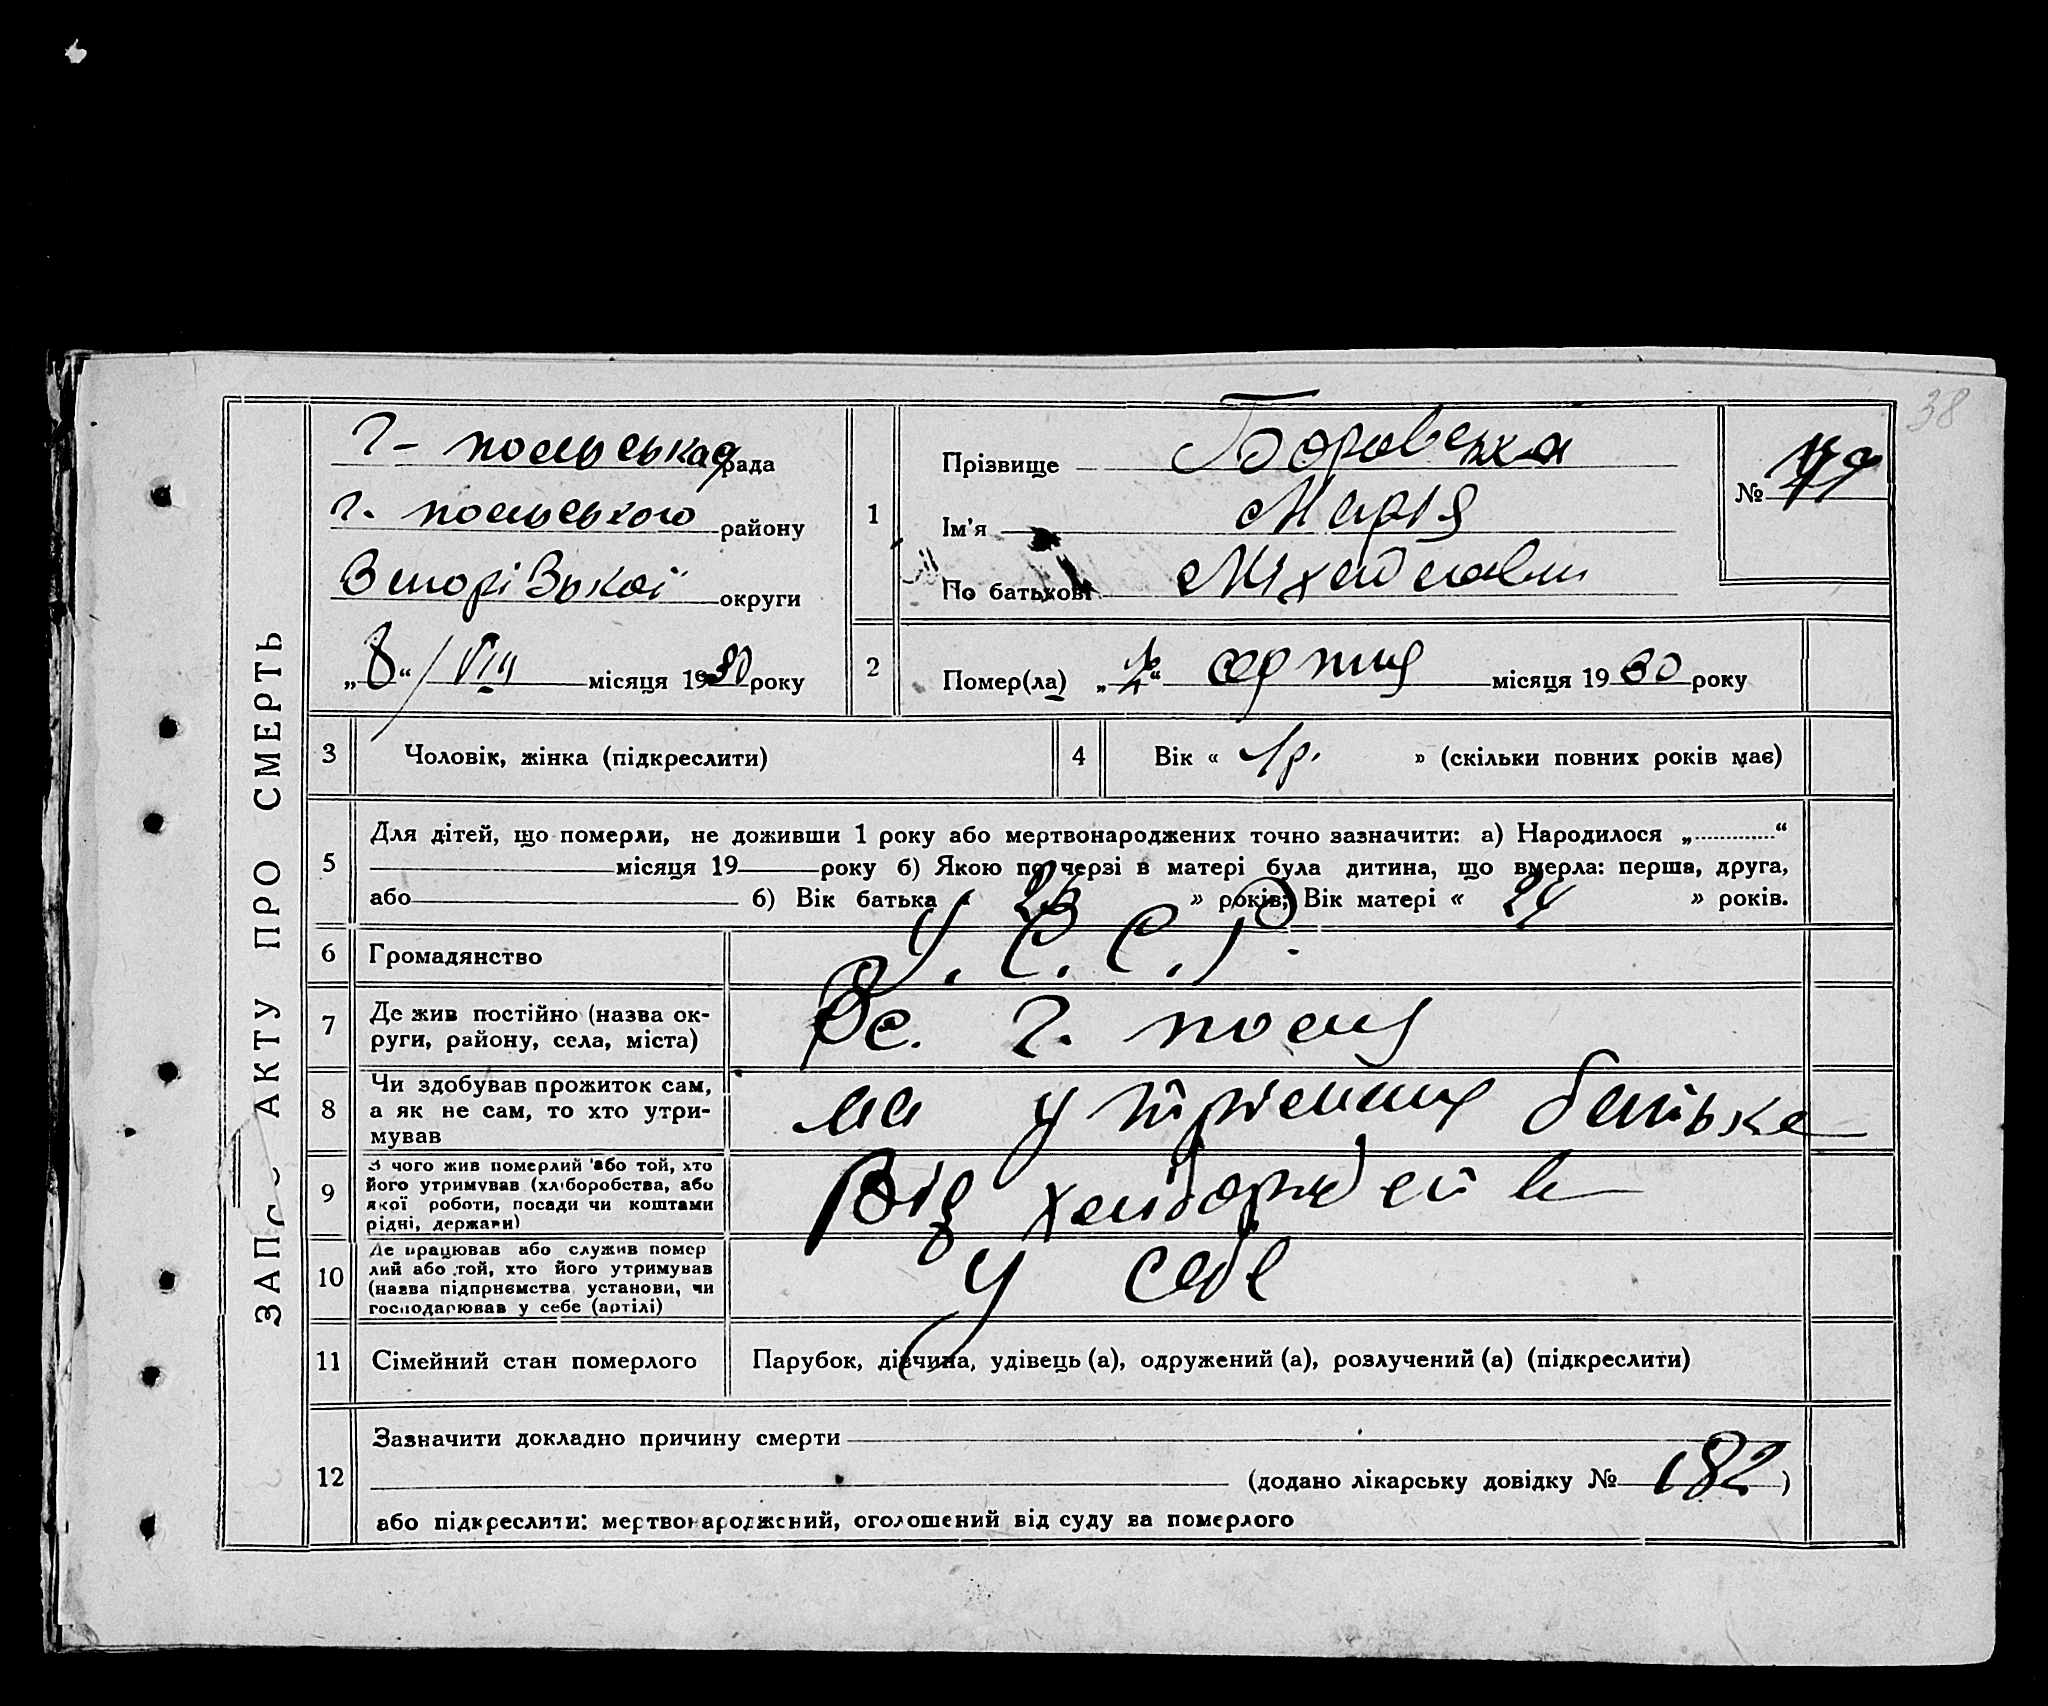 38
ЗАПИС АКТУ ПРО СМЕРТЬ
Г-польська рада
Г. польського району
округи
„8“ VIII місяця 1930 року
1
Прізвище Боровська
Ім'я Марія
По батькові
№
2
Помер(ла) серпня місяця 1930 року
3 Чоловік, жінка (підкреслити)
4 Вік « 1 р. » (скільки повних років має)
5 Для дітей, що померли, не доживши 1 року або мертвонароджених точно зазначити: а) Народилося „ “
місяця 19 року б) Якою по черзі в матері була дитина, що вмерла: перша, друга,
або б) Вік батька « » років; Вік матері « 24 » років.
6 Громадянство У.С.С.Р.
7 Де жив постійно (назва ок-
руги, району, села, міста)
с. Г. поля
8 Чи здобував прожиток сам,
а як не сам, то хто утри-
мував
на утриманні батька
9 З чого жив померлий або той, хто
його утримував (хліборобства, або
якої роботи, посади чи коштами
рідні, держави)
Від хліборобства
10 Де працював або служив помер
лий або той, хто його утримував
(назва підприємства установи, чи
господарював у себе (артілі)
у себе
11 Сімейний стан померлого Парубок, дівчина, удівець (а), одружений (а), розлучений (а) (підкреслити)
12 Зазначити докладно причину смерти
(додано лікарську довідку № 182)
або підкреслити: мертвонароджений, оголошений від суду за померлого